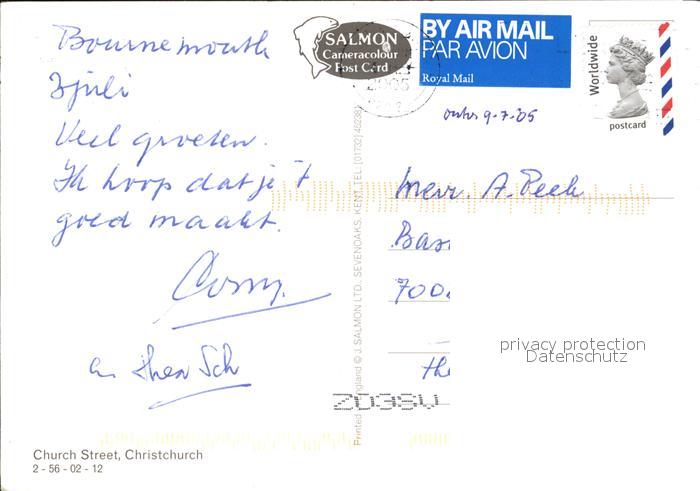 Bournemouth
3 juli
Veel groeten.
Ik hoop dat je 't
goed maakt.
Corry.
en Thea Sch
Church Street, Christchurch
2 - 56 - 02 - 12
SALMON
Cameracolour
Post Card
2005
BY AIR MAIL
PAR AVION
Royal Mail
Worldwide
postcard
9-7-'05
Printed England © J. SALMON LTD., SEVENOAKS, KENT. TEL. (01732) 45238
Mevr. A. Peek
Bas
700
the
privacy protection
Datenschutz